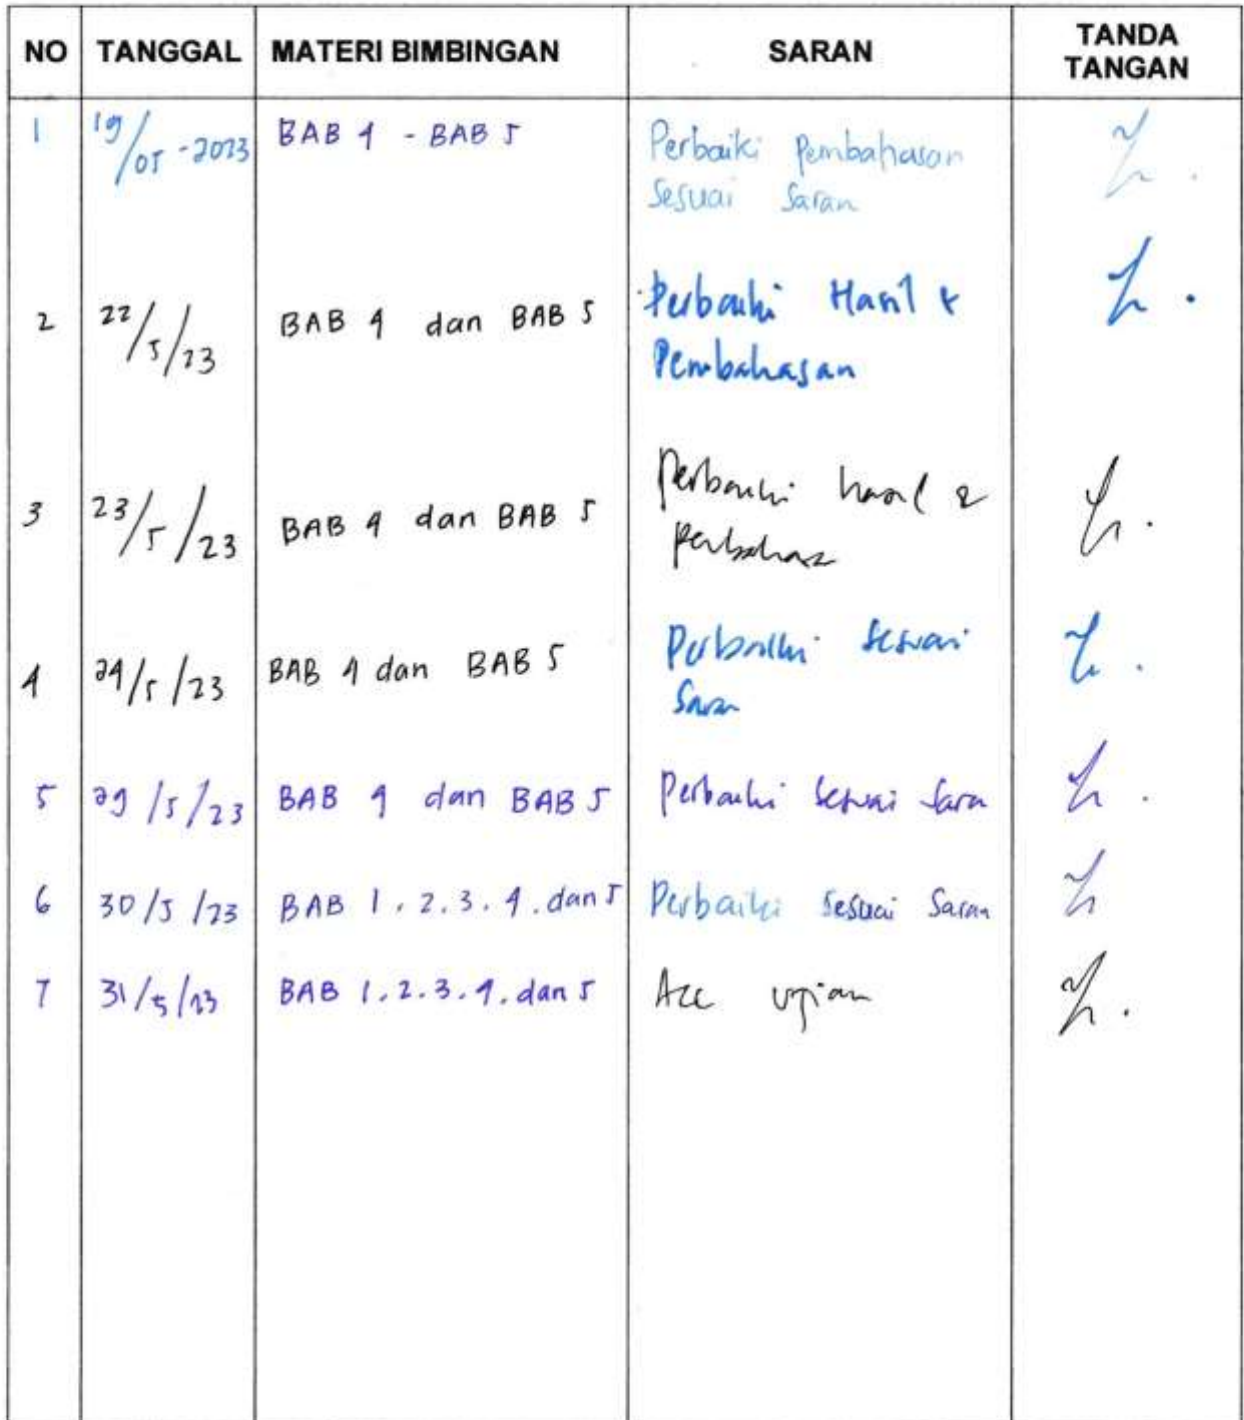 NO TANGGAL MATERI BIMBINGAN SARAN TANDA TANGAN
1 19/05-2023 BAB 4 - BAB 5 Perbaiki Pembahasan
Sesuai Saran
2 22/5/23 BAB 4 dan BAB 5 Perbaiki Hasil &
Pembahasan
3 23/5/23 BAB 4 dan BAB 5 Perbaiki hasil &
4 24/5/23 BAB 4 dan BAB 5 Perbaiki sesuai
Saran
5 29/5/23 BAB 4 dan BAB 5 Perbaiki sesuai Saran
6 30/5/23 BAB 1.2.3.4.dan 5 Perbaiki sesuai Saran
7 31/5/23 BAB 1.2.3.4.dan 5 Acc ujian